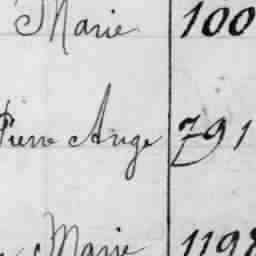 Marie 100
Pierre Ange 791
Marie 1198